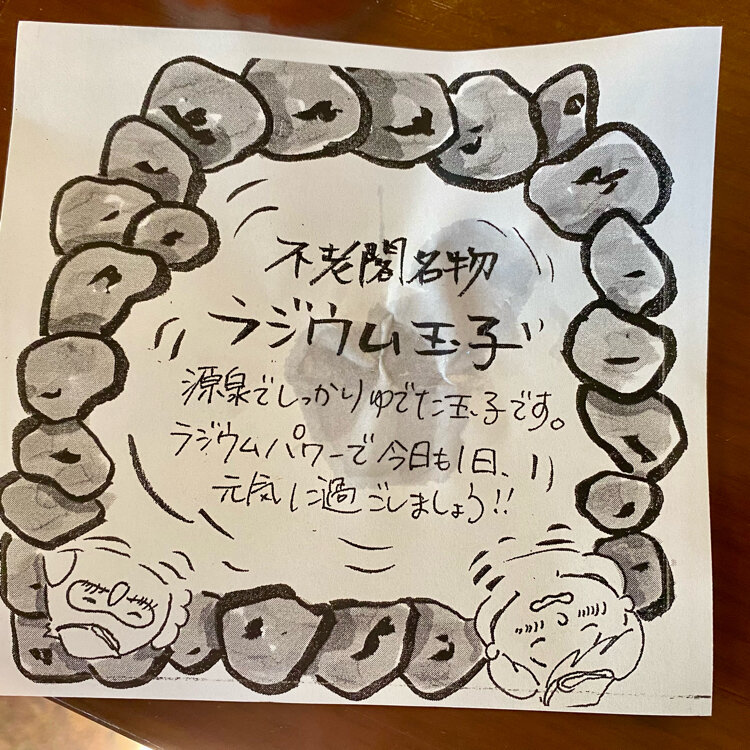 不老閣名物
ラジウム玉子
源泉でしっかりゆでた玉子です。
ラジウムパワーで今日も1日、
元気に過ごしましょう!!